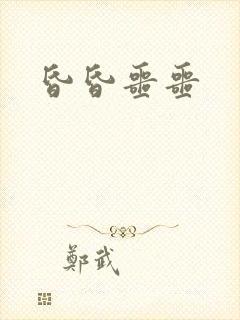 昏昏噩噩
鄭武